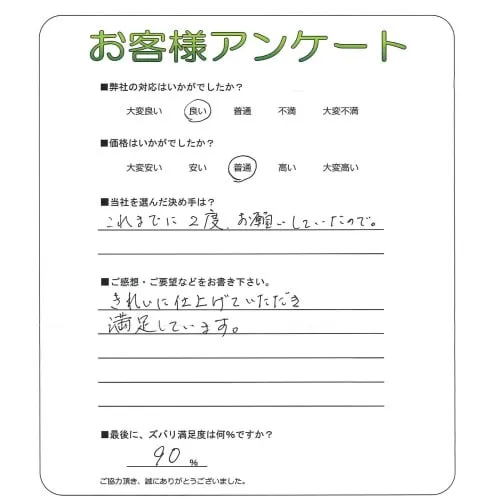 お客様アンケート
■弊社の対応はいかがでしたか?
大変良い 良い 普通 不満 大変不満
■価格はいかがでしたか?
大変安い 安い 普通 高い 大変高い
■当社を選んだ決め手は?
これまでに2度、お願いしていたので。
■ご感想・ご要望などをお書き下さい。
きれいに仕上げていただき
満足しています。
■最後に、ズバリ満足度は何%ですか?
90 %
ご協力頂き、誠にありがとうございました。